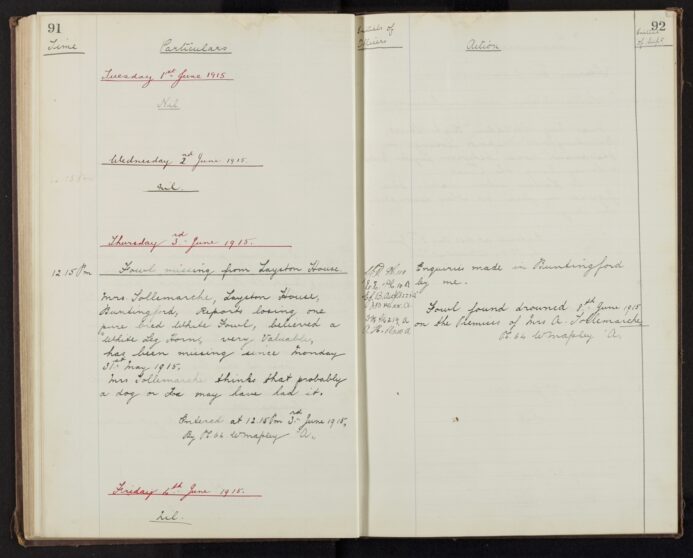 91
Time
Particulars
Tuesday 1st June 1915
Nil
Wednesday 2nd June 1915
Nil.
Thursday 3rd June 1915.
12.15 Pm
Fowl missing from Layston House
Mrs Tollemarche, Layston House,
Buntingford, Reports losing one
pure bred White Fowl, believed a
White Leg Forn, very Valuable,
has been missing since Monday
31st May 1915.
Mrs Tollemarche thinks that probably
a dog or Fox may have had it.
Entered at 12.15 Pm 3rd June 1915,
By Pc 64 W Mapley "A".
Friday 4th June 1915.
Nil.
92
Initials of
Officers
Action
Initials
of Supt
Enquiries made in Buntingford
by me.
Fowl found drowned 8th June 1915
on the Premises of Mrs A. Tollemarche
Pc 64 W Mapley "A".